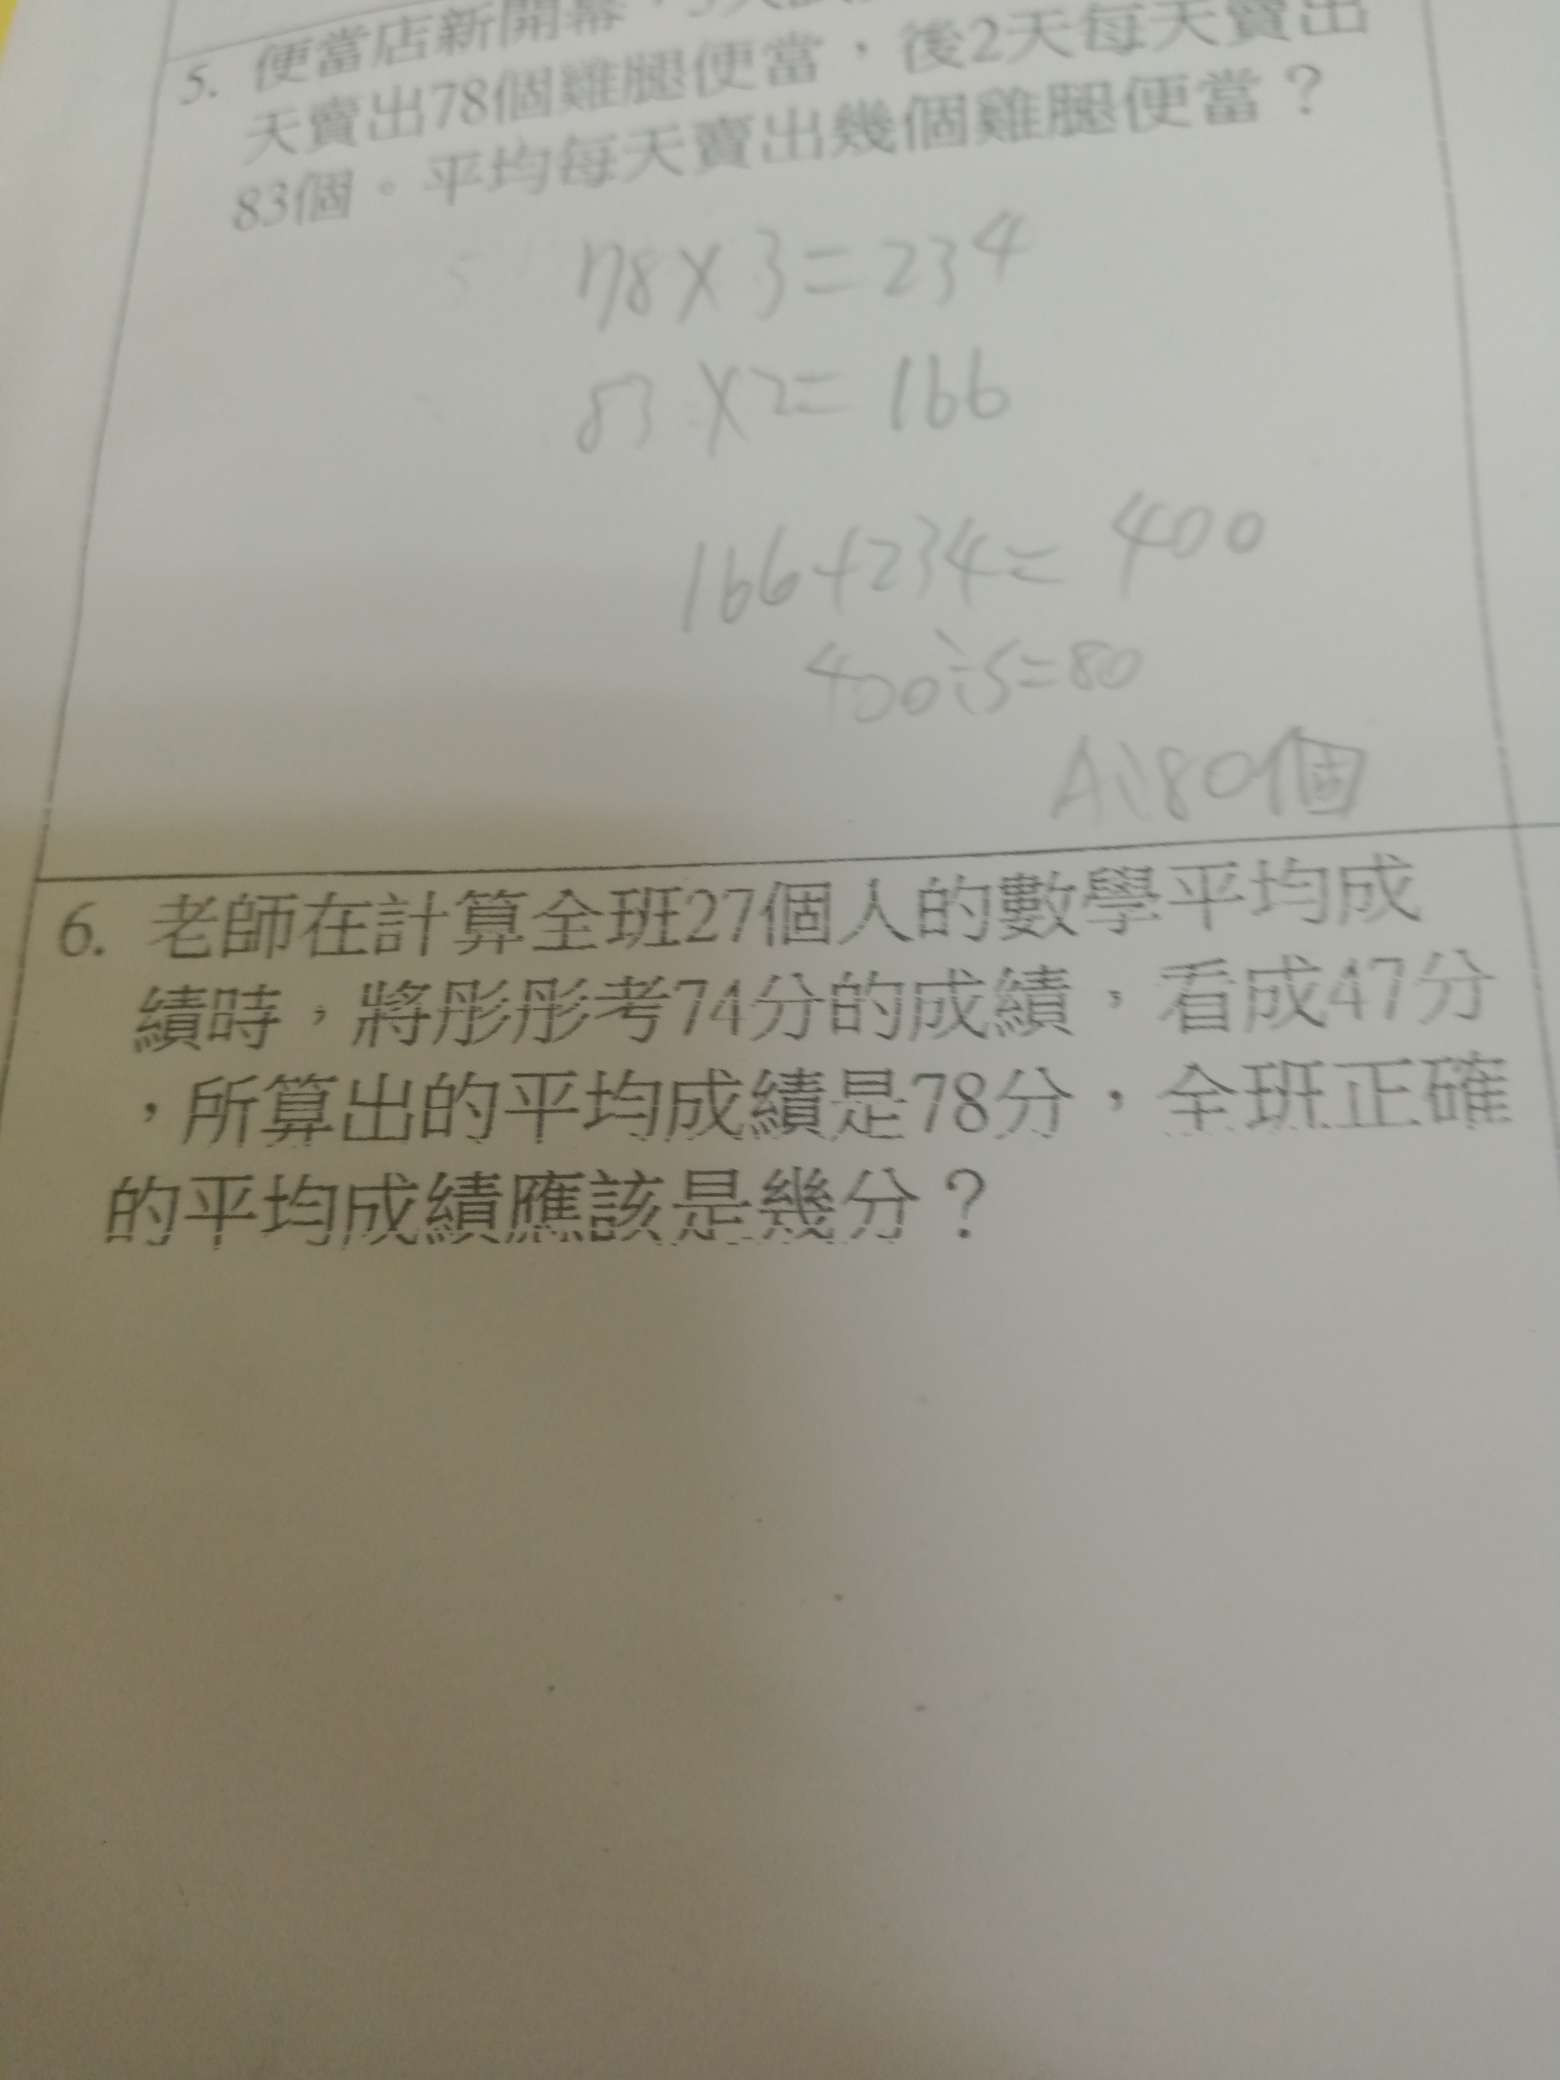 5. 便當店新開幕，
天賣出78個雞腿便當，後2天每天賣出
83個。平均每天賣出幾個雞腿便當？
78×3=234
83×2=166
166+234=400
400÷5=80
A:80個
6. 老師在計算全班27個人的數學平均成
績時，將彤彤考74分的成績，看成47分
，所算出的平均成績是78分，全班正確
的平均成績應該是幾分？